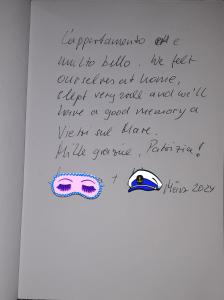 L'appartamento e
multo bello. We felt
ourselves at home,
slept very well and we'll
have a good memory a
Vietri sul Mare.
Mille grazie, Patrizia!
+
März 2024